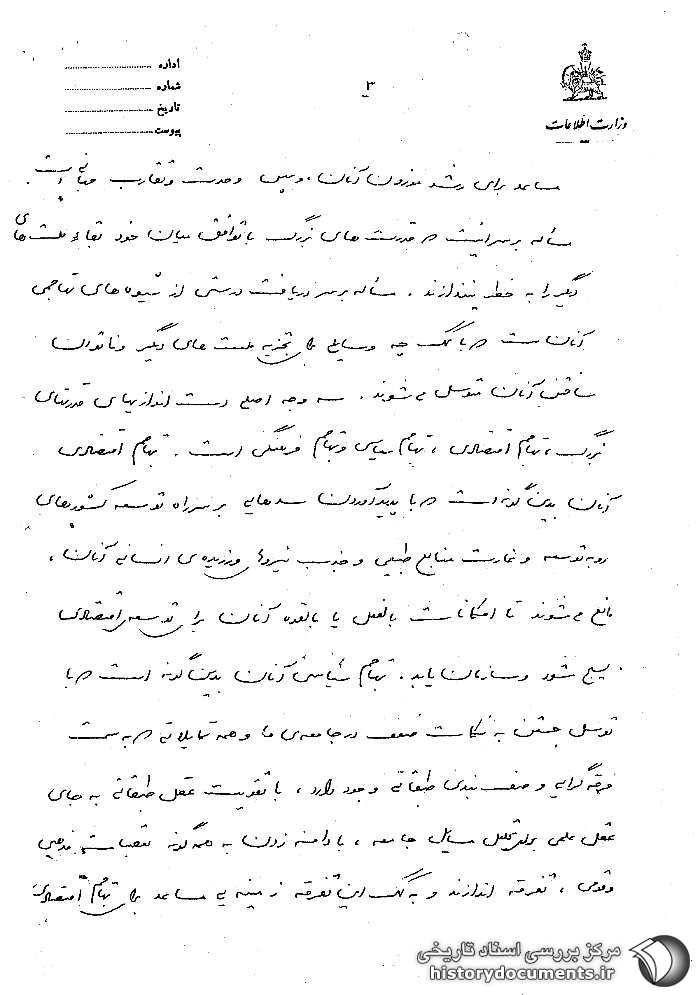 اداره
شماره
تاریخ
پیوست
۳
وزارت اطلاعات
مساعد برای رشد موزون آنان، و سپس وحدت و تقارب جهانی است.
مسأله بر سر اینست که قدرت های بزرگ با توافق میان خود بقاء ملت های
دیگر را به خطر نیندازند. مسأله بر سر دریافت درستی از شیوه های تهاجمی
آنان است که با کمک چه وسایلی برای تجزیه ملت های دیگر و ناتوان
ساختن آنان متوسل می شوند. سه وجه اصلی دست اندازیهای قدرتهای
بزرگ، تهاجم اقتصادی، تهاجم سیاسی و تهاجم فرهنگی است. تهاجم اقتصادی
آنان بدین گونه است که با پدید آوردن سدهایی بر سر راه توسعه کشورهای
رو به توسعه و غارت منابع طبیعی و جذب نیروهای ورزیده ی انسانی آنان،
مانع می شوند تا امکانات بالفعل یا بالقوه آنان برای توسعه اقتصادی
بسیج شود و سازمان یابد. تهاجم سیاسی آنان بدین گونه است که با
توسل جستن به نکات ضعف در جامعه ی ما و همه تمایلاتی که به سمت
فرقه گرایی و صنف بندی طبقاتی وجود دارد، با تقویت عقل طبقاتی به جای
عقل علمی برای تحلیل مسایل جامعه، با دامنه زدن به همه گونه تعصبات مذهبی
و قومی، تفرقه اندازند و به کمک این تفرقه زمینه یی مساعد برای تهاجم اقتصادی
مرکز بررسی اسناد تاریخی
historydocuments.ir